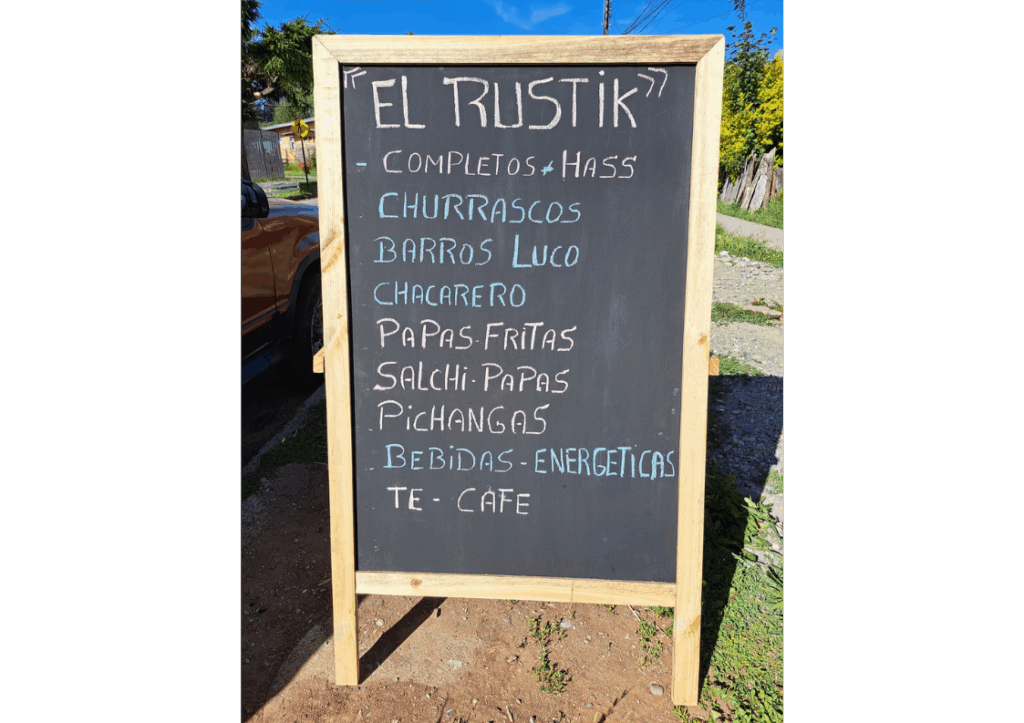 "EL RUSTiK"
- COMPLETOS ≠ HASS
CHURRASCOS
BARROS LUCO
CHACARERO
PaPaS-FRiTAS
SALCHi-PaPaS
PiCHANGAS
BEBiDAS-ENERGETiCAS
TE - CAFE